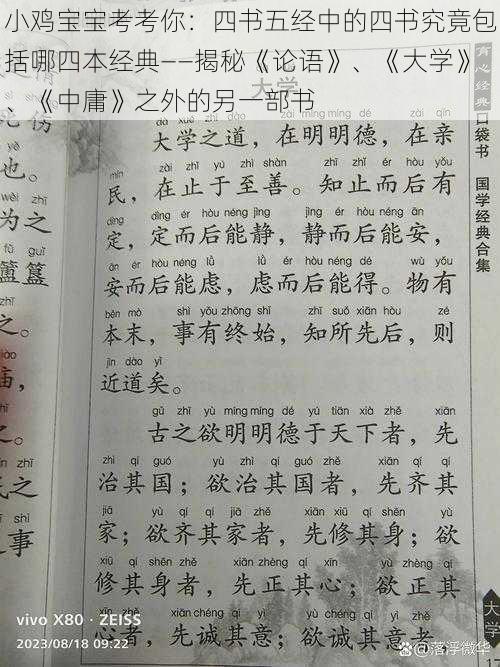 小鸡宝宝考考你：四书五经中的四书究竟包
括哪四本经典——揭秘《论语》、《大学》
、《中庸》之外的另一部书
大学
dà xué zhī dào zài míng míng dé zài qīn
大学之道，在明明德，在亲
mín zài zhǐ yú zhì shàn zhī zhǐ ér hòu yǒu
民，在止于至善。知止而后有
dìng dìng ér hòu néng jìng jìng ér hòu néng ān
定，定而后能静，静而后能安，
ān ér hòu néng lǜ lǜ ér hòu néng dé wù yǒu
安而后能虑，虑而后能得。物有
běn mò shì yǒu zhōng shǐ zhī suǒ xiān hòu zé
本末，事有终始，知所先后，则
jìn dào yǐ
近道矣。
gǔ zhī yù míng míng dé yú tiān xià zhě xiān
古之欲明明德于天下者，先
zhì qí guó yù zhì qí guó zhě xiān qí qí
治其国；欲治其国者，先齐其
jiā yù qí qí jiā zhě xiān xiū qí shēn yù
家；欲齐其家者，先修其身；欲
xiū qí shēn zhě xiān zhèng qí xīn yù zhèng qí
修其身者，先正其心；欲正其
xīn zhě xiān chéng qí yì yù chéng qí yì zhě
心者，先诚其意；欲诚其意者
伤
也。
wèi zhī
为之
fǔ guǐ
簠簋
zhī
之。
庙，
之。
之
shì
事
口袋书
国学经典合集
大学
vivo X80 · ZEISS
2023/08/18 09:22
@落浮微华